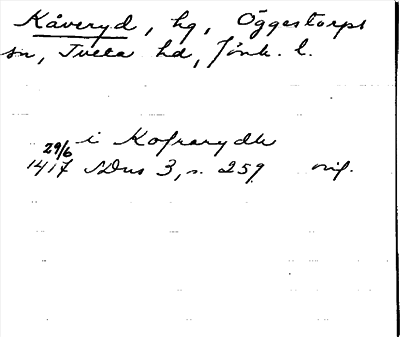 Kåveryd, hg, Öggestorps
sn, Tveta hd, Jönk. l.
i Kofrarydh
29/6
1417 SDns 3, s. 259 orig.